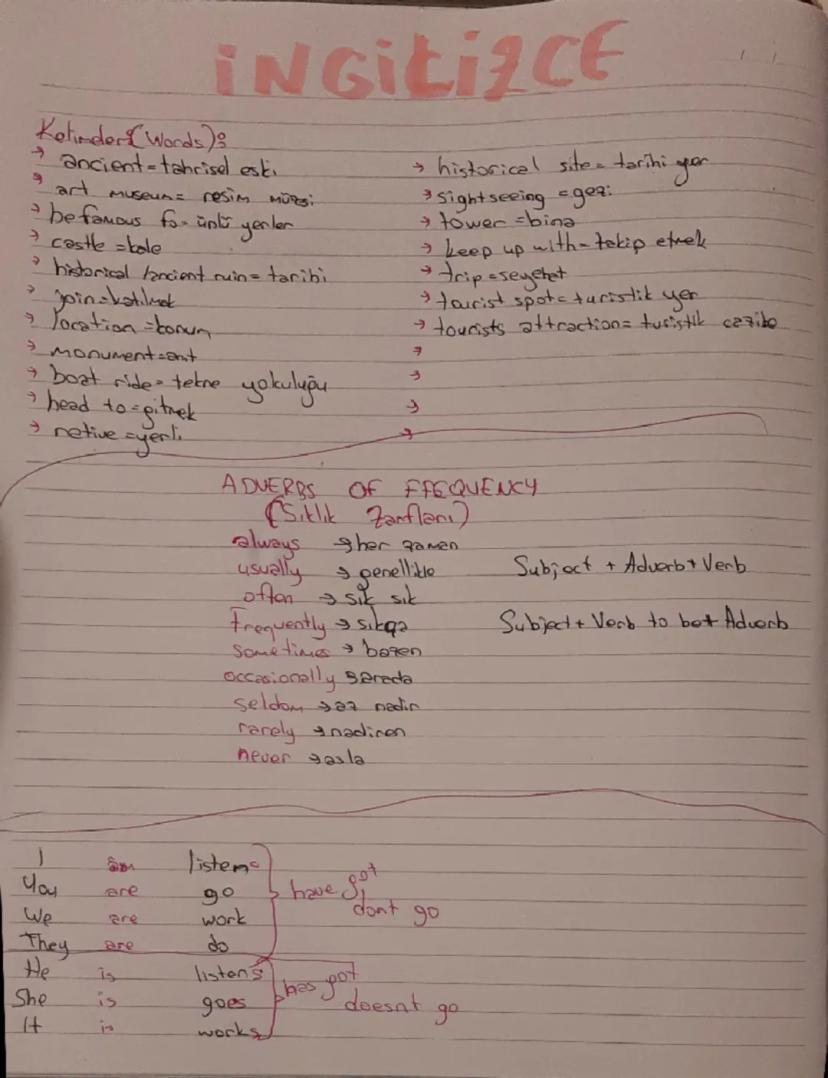 İNGİLİZCE
Kelimeler (Words):
→ ancient = tahrisel eski
→ art museum = resim müzesi
→ be famous fo = ünlü yerler
→ castle = kale
→ historical / ancient ruin = tarihi
→ join = katılmak
→ location = konum
→ monument = anıt
→ boat ride = tekne yokuluğu
→ head to = gitmek
→ native = yerli
→ historical site = tarihi yer
→ sightseeing = gezi
→ tower = bina
→ keep up with = takip etmek
→ trip = seyehat
→ tourist spot = turistik yer
→ tourists attraction = turistik cazibe
→
→
→
→
ADVERBS OF FFEQUENCY
(Sıklık Zarfları)
always → her zaman
usually → genellikle
often → sık sık
frequently → sıkça
sometimes → bazen
occasionally → arada
seldom → az nadir
rarely → nadiren
never → asla
Subject + Adverb + Verb
Subject + Verb to be + Adverb
I am listen
You are go
We are work
They are do
have got
dont go
He is listens
She is goes
It is works
has got
doesnt go